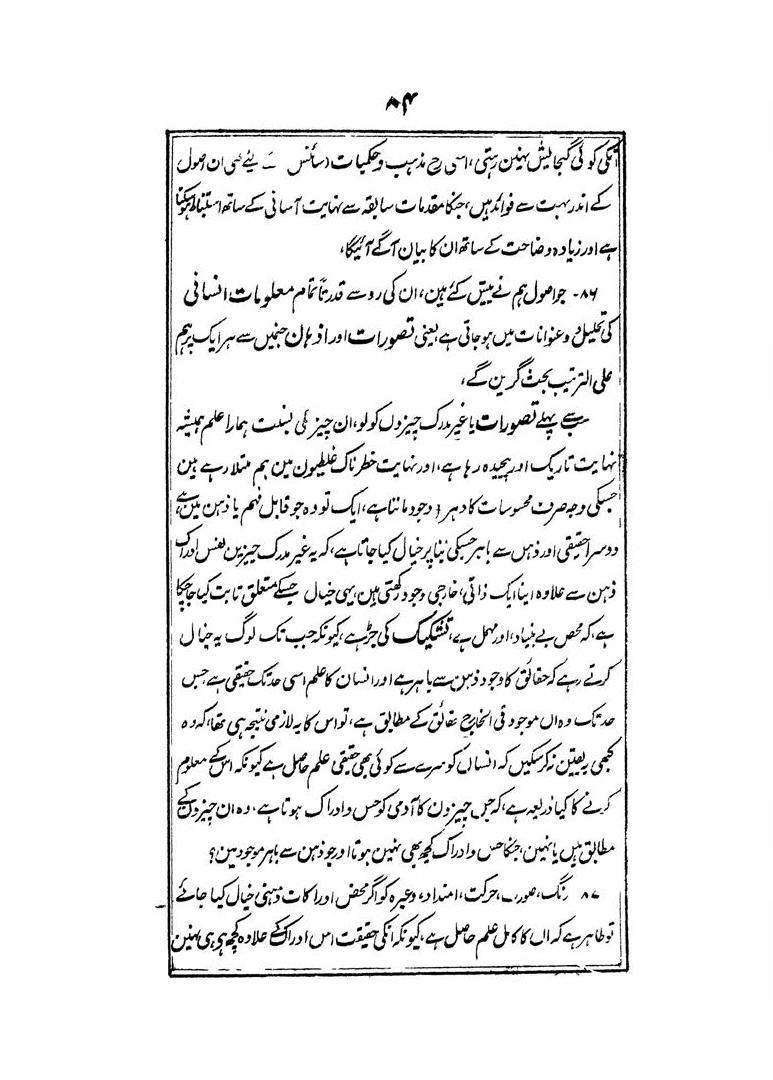 ۸۴
انکی کوئی گنجایش نہین رہتی، اسی طرح مذہب و حکمیات (سائنس کے لئے بھی ان اصول
کے اندر بہت سے فوائد ہیں، جنکا مقدمات سابقہ سے نہایت آسانی کے ساتھ استنباط ہو سکتا
ہے اور زیادہ وضاحت کے ساتھ ان کا بیان آگے آئیگا،
۸۶۔ جو اصول ہم نے پیش کئے ہین، ان کی رو سے قدرتاً تمام معلومات انسانی
کی تحلیل دو عنوانات میں ہو جاتی ہے، یعنی تصورات اور اذہان جنمیں سے ہر ایک پر ہم
علی الترتیب بحث کرین گے،
سب سے پہلے تصورات یا غیر مدرک چیزون کو لو، ان چیزون کی نسبت ہمارا علم ہمیشہ
نہایت تاریک اور پیچیدہ رہا ہے، اور نہایت خطرناک غلطیون مین ہم مبتلا رہے ہین
جسکی وجہ صرف محسوسات کا دہرا وجود ماننا ہے، ایک تو وہ جو قابل فہم یا ذہن مین ہے
دوسرا حقیقی اور ذہن سے باہر جسکی بنا پر خیال کیا جاتا ہے، کہ یہ غیر مدرک چیزین نفس ادراک
ذہن سے علاوہ اپنا ایک ذاتی، خارجی وجود رکھتی ہین، یہی خیال جسکے متعلق ثابت کیا جا چکا
ہے، کہ محض بے بنیاد، اور مہمل ہے، تشکیک کی جڑ ہے، کیونکہ جب تک لوگ یہ خیال
کرتے رہے کہ حقائق کا وجود ذہن سے باہر ہے اور انسان کا علم اسی حد تک حقیقی ہے جس
حد تک وہ ان موجود فی الخارج حقائق کے مطابق ہے، تو اس کا یہ لازمی نتیجہ ہی تھا، کہ وہ
کبھی یہ یقین نہ کر سکیں کہ انسان کو سرے سے کوئی بھی حقیقی علم حاصل ہے کیونکہ اس کے معلوم
کرنے کا کیا ذریعہ ہے، کہ جن چیزون کا آدمی کو حس و ادراک ہوتا ہے، وہ ان چیزون کے
مطابق ہیں یا نہین، جنکا حس و ادراک کچھ بھی نہین ہوتا اور جو ذہن سے باہر موجود ہین؟
۸۷ رنگ، صورت، حرکت، امتداد، وغیرہ کو اگر محض ادراکات ذہنی خیال کیا جائے
تو ظاہر ہے کہ ان کا کامل علم حاصل ہے، کیونکہ انکی حقیقت اس ادراک کے علاوہ کچھ ہو ہی نہین